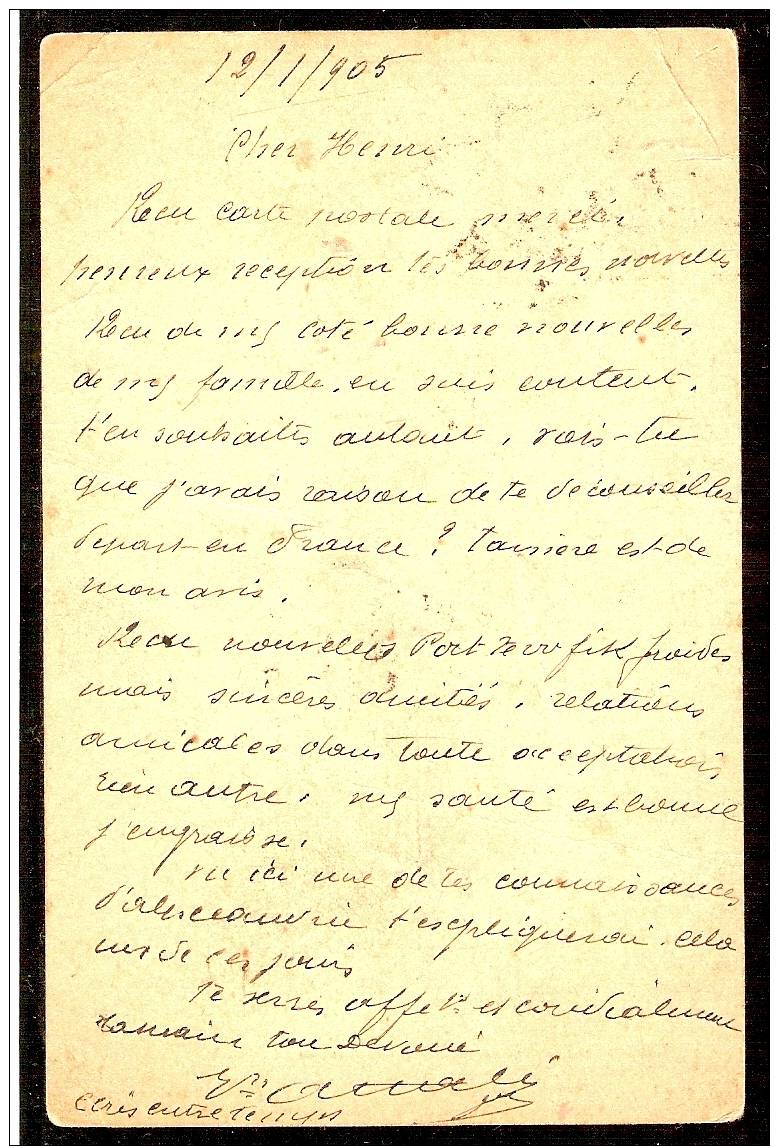 12/1/905
Cher Henri
Recu carte postale merci,
heureux reception tes bonnes nouvelles
Recu de my coté bonne nouvelles
de my famille, en suis content,
t'en souhaites autant, vois-tu
que j'avais raison de te deconseiller
depart en France ? est de
mon avis.
Recu nouvelles Port Tewfik froides
mais sincères amitiés, relations
amicales dans toute acceptation,
rien autre, my santé est bonne
j'engraisse.
vu ici une de tes connaissances
d'alexandrie t'expliquerai cela
un de ces jours
Te serres affe et cordialement
la main ton Devoué
Ecris entre temps